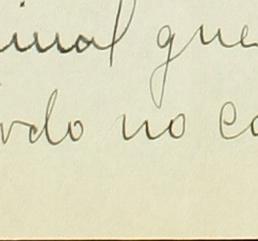 inal que
do no co